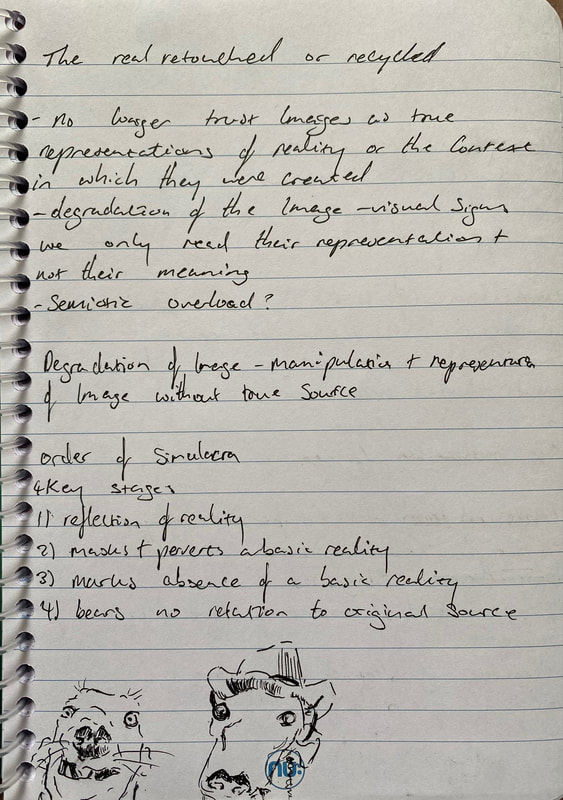 The real retouched or recycled
- no longer trust images as true
representations of reality or the context
in which they were created
- degradation of the image - visual signs
we only read their representation +
not their meaning
- Semiotic overload?
Degradation of image - manipulation + representation
of image without true source
order of Simulacra
4 Key stages
1) reflection of reality
2) masks + perverts a basic reality
3) marks absence of a basic reality
4) bears no relation to original source
nu: